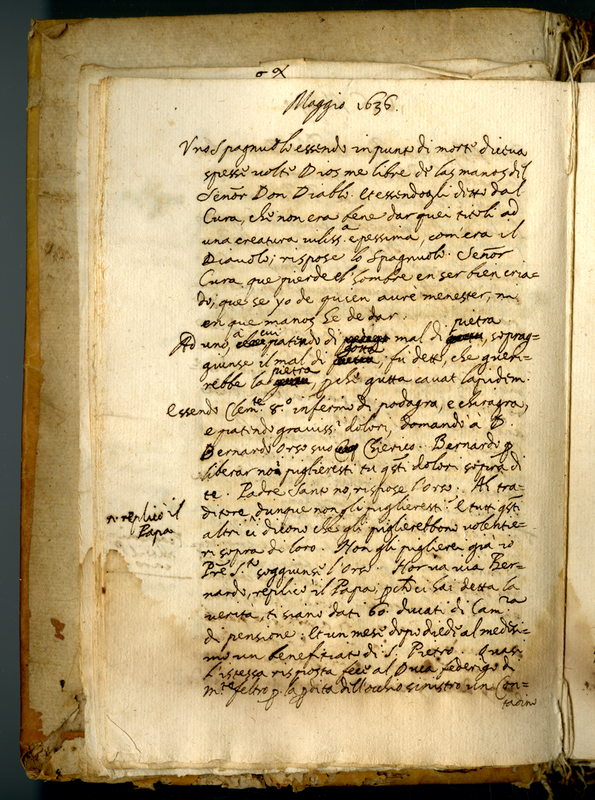 Maggio 1636.
Uno Spagnuolo essendo in punto di morte diceva
spesse volte Dios me libre de las manos del
Señor Don Diablo. Et essendogli detto dal
Cura, che non era bene dar quei titoli ad
una creatura viliss.a e pessima, com'era il
Diavolo; rispose lo Spagnuolo. Señor
Cura, que pierde el hombre en ser bien cria=
do, que se yo de quien auré menester, ni
en que manos he de dar.
Ad uno, a cui patindo di mal di pietra, soprag=
giunse il mal di gotta fu detto, che guari=
rebbe la pietra, pchè gutta cavat lapidem.
Essendo Clem.te 8.o infermo di podagra, e chiragra,
e patindo gravissi dolori, domandò a D.
Bernardo Orso suo Chierico. Bernardo p
liberar noi piglieresti tu qsti dolori sopra di
te. Padre Santo no, rispose l'Orso. Ah tra=
ditore, dunque non gli piglieresti? E tuti qsti
n. replicò il
Papa
altri ci dicono che gli piglierebbono volentie=
ri sopra di loro. Non gli piglierei già io
Pre S.to soggiunse l'Orso. Hor va via Ber=
nardo, replicò il Papa, pchè ci hai detta la
verità, ti siano dati 60. ducati di Cam.ra
di pensione: Et un mese dopo diedi al medesi=
mo un benefiziato di S. Pietro. Quasi
l'istessa risposta fece al Duca federigo di
M.te feltro p. la pdita dell'occhio sinistro un Con=
tadino